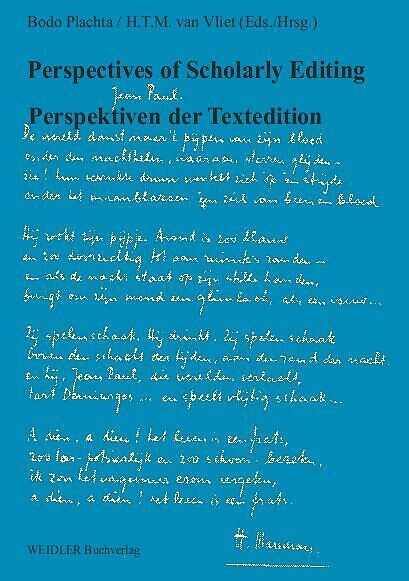 Bodo Plachta / H.T.M. van Vliet (Eds./Hrsg.)
Perspectives of Scholarly Editing
Jean Paul.
Perspektiven der Textedition
De wereld danst naar 't pijpen van zijn bloed
onder den nachthelm, waaraan sterren glijden –
zie! hun droom zich op
onder het van been en bloed.
Hij rookt zijn pijpje. Avond is zoo blauw
en zoo doorzichtig tot aan ruimte's randen –
en als de nacht staat op zijn stille handen,
buigt om zijn mond een glimlach, als een
Zij spelen schaak. Hij drinkt. Zij spelen schaak
boven den schacht der tijden, aan den rand der nacht
en hij, Jean Paul, die werelden verlacht,
tart Demiurgos ... en speelt vlijtig schaak ...
A dieu, a dieu! het leven is een frats,
zoo potsierlijk en zoo schoon
ik zou het vergeten,
a dieu, a dieu! het leven is een frats.
H. Marsman
WEIDLER Buchverlag